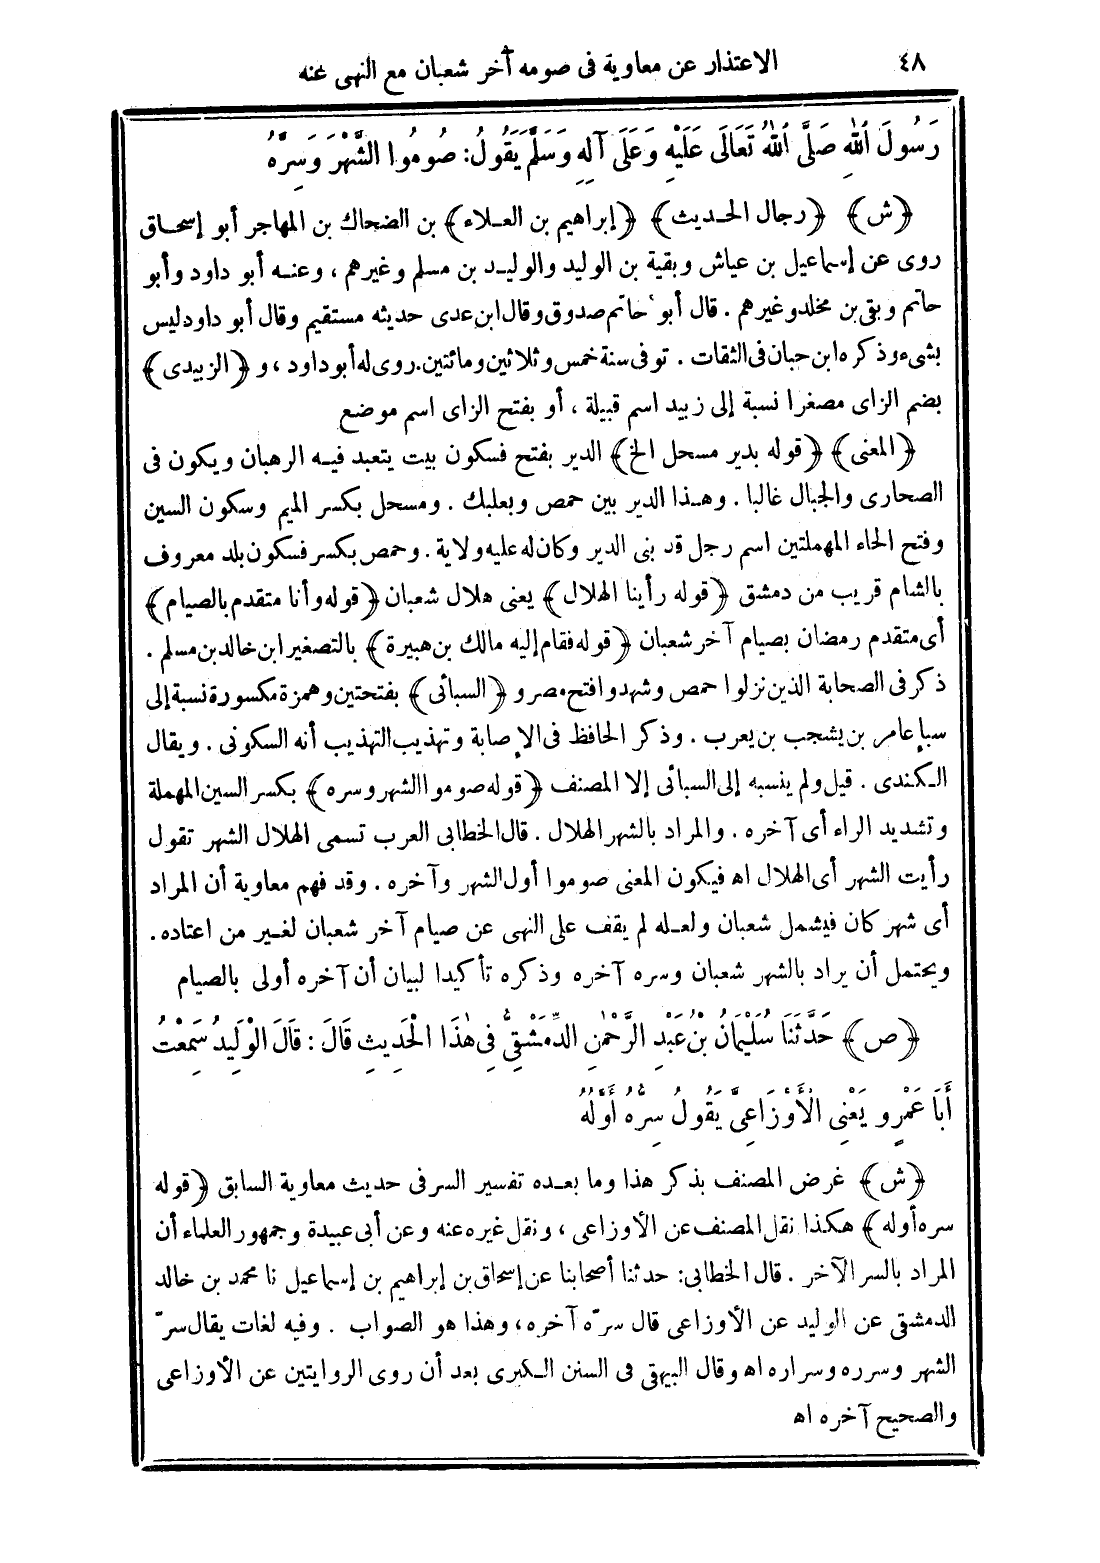 ٤٨ الاعتذار عن معاوية فى صومه آخر شعبان مع النهى عنه
رَسُولَ ٱللهِ صَلَّى ٱللهُ تَعَالَى عَلَيْهِ وَعَلَى آلِهِ وَسَلَّمَ يَقُولُ: صُومُوا الشَّهْرَ وَسِرَّهُ
﴿ش﴾ ﴿رجال الحديث﴾ ﴿إبراهيم بن العلاء﴾ بن الضحاك بن المهاجر أبو إسحاق
روى عن إسماعيل بن عياش وبقية بن الوليد والوليد بن مسلم وغيرهم ، وعنه أبو داود وأبو
حاتم وبقى بن مخلد وغيرهم . قال أبو حاتم صدوق وقال ابن عدى حديثه مستقيم وقال أبو داود ليس
بشىء وذكره ابن حبان فى الثقات . توفى سنة خمس وثلاثين ومائتين . روى له أبو داود ، و ﴿الزبيدى﴾
بضم الزاى مصغرا نسبة إلى زبيد اسم قبيلة ، أو بفتح الزاى اسم موضع
﴿المعنى﴾ ﴿قوله بدير مسحل الخ﴾ الدير بفتح فسكون بيت يتعبد فيه الرهبان ويكون فى
الصحارى والجبال غالبا . وهذا الدير بين حمص وبعلبك . ومسحل بكسر الميم وسكون السين
وفتح الحاء المهملتين اسم رجل قد بنى الدير وكان له عليه ولاية . وحمص بكسر فسكون بلد معروف
بالشام قريب من دمشق ﴿قوله رأينا الهلال﴾ يعنى هلال شعبان ﴿قوله وأنا متقدم بالصيام﴾
أى متقدم رمضان بصيام آخر شعبان ﴿قوله فقام إليه مالك بن هبيرة﴾ بالتصغير ابن خالد بن مسلم .
ذكر فى الصحابة الذين نزلوا حمص وشهدوا فتح مصر و ﴿السبائى﴾ بفتحتين وهمزة مكسورة نسبة إلى
سبإ عامر بن يشجب بن يعرب . وذكر الحافظ فى الإصابة وتهذيب التهذيب أنه السكونى . ويقال
الكندى . قيل ولم ينسبه إلى السبائى إلا المصنف ﴿قوله صوموا الشهر وسره﴾ بكسر السين المهملة
وتشديد الراء أى آخره . والمراد بالشهر الهلال . قال الخطابى العرب تسمى الهلال الشهر تقول
رأيت الشهر أى الهلال اه فيكون المعنى صوموا أول الشهر وآخره . وقد فهم معاوية أن المراد
أى شهر كان فيشمل شعبان ولعله لم يقف على النهى عن صيام آخر شعبان لغير من اعتاده .
ويحتمل أن يراد بالشهر شعبان وسره آخره وذكره تأكيدا لبيان أن آخره أولى بالصيام
﴿ص﴾ حَدَّثَنَا سُلَيْمَانُ بْنُ عَبْدِ الرَّحْمٰنِ الدِّمَشْقِىُّ فِى هٰذَا الْحَدِيثِ قَالَ : قَالَ الْوَلِيدُ سَمِعْتُ
أَبَا عَمْرٍو يَعْنِى الْأَوْزَاعِىَّ يَقُولُ سِرُّهُ أَوَّلُهُ
﴿ش﴾ غرض المصنف بذكر هذا وما بعده تفسير السر فى حديث معاوية السابق ﴿قوله
سره أوله﴾ هكذا نقل المصنف عن الأوزاعى ، ونقل غيره عنه وعن أبى عبيدة وجمهور العلماء أن
المراد بالسر الآخر . قال الخطابى: حدثنا أصحابنا عن إسحاق بن إبراهيم بن إسماعيل نا محمد بن خالد
الدمشقى عن الوليد عن الأوزاعى قال سرّه آخره، وهذا هو الصواب . وفيه لغات يقال سرّ
الشهر وسرره وسراره اه وقال البيهقى فى السنن الكبرى بعد أن روى الروايتين عن الأوزاعى
والصحيح آخره اه